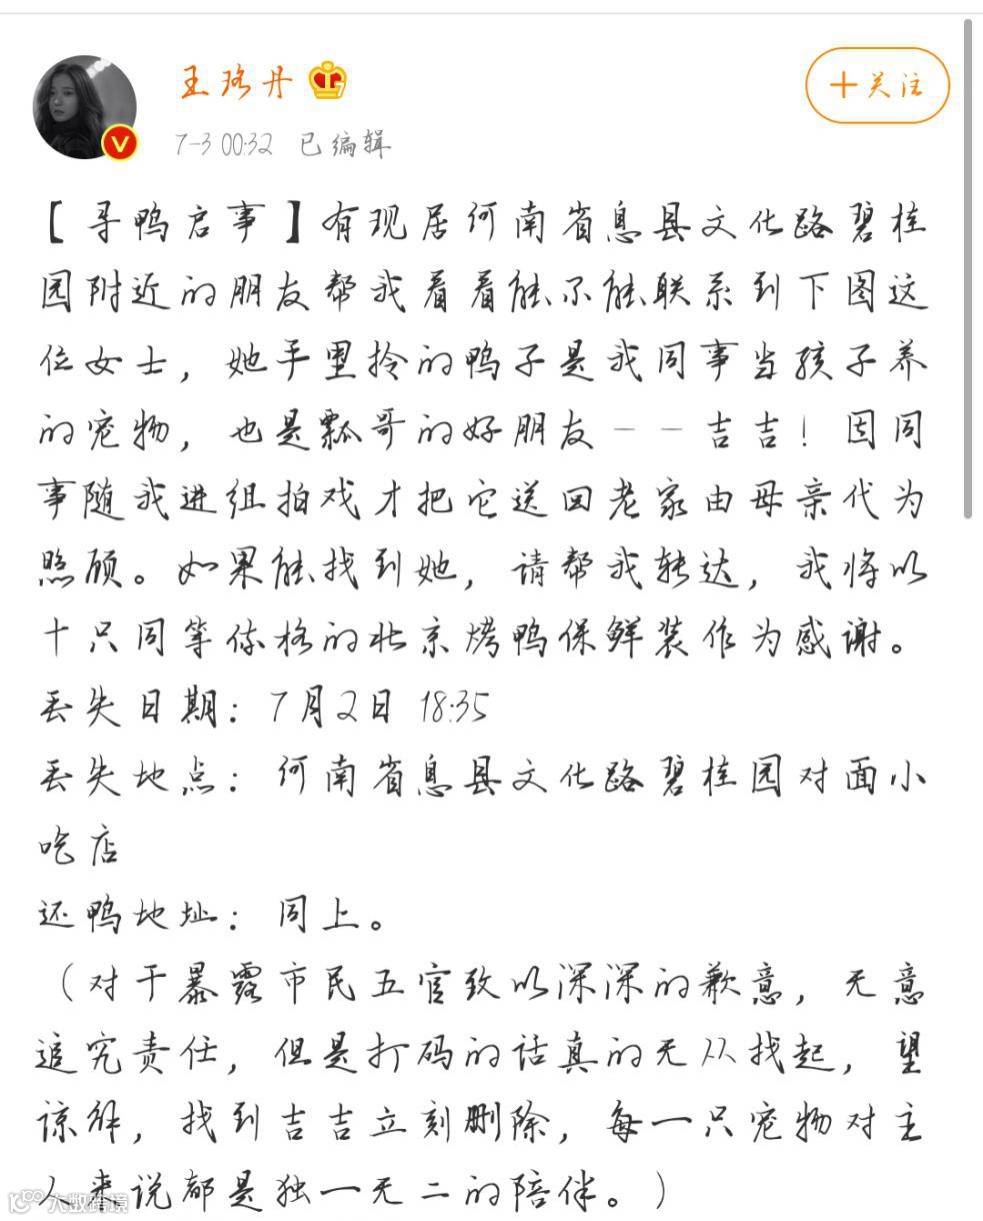 王珞丹
+关注
7-3 00:32 已编辑
【寻鸭启事】有现居河南省息县文化路碧桂
园附近的朋友帮我看看能不能联系到下图这
位女士，她手里拎的鸭子是我同事当孩子养
的宠物，也是瓢哥的好朋友——吉吉！因同
事随我进组拍戏才把它送回老家由母亲代为
照顾。如果能找到她，请帮我转达，我将以
十只同等价格的北京烤鸭保鲜装作为感谢。
丢失日期：7月2日 18:35
丢失地点：河南省息县文化路碧桂园对面小
吃店
还鸭地址：同上。
（对于暴露市民五官致以深深的歉意，无意
追究责任，但是打码的话真的无从找起，望
谅解，找到吉吉立刻删除，每一只宠物对主
人来说都是独一无二的陪伴。）
大数跨境